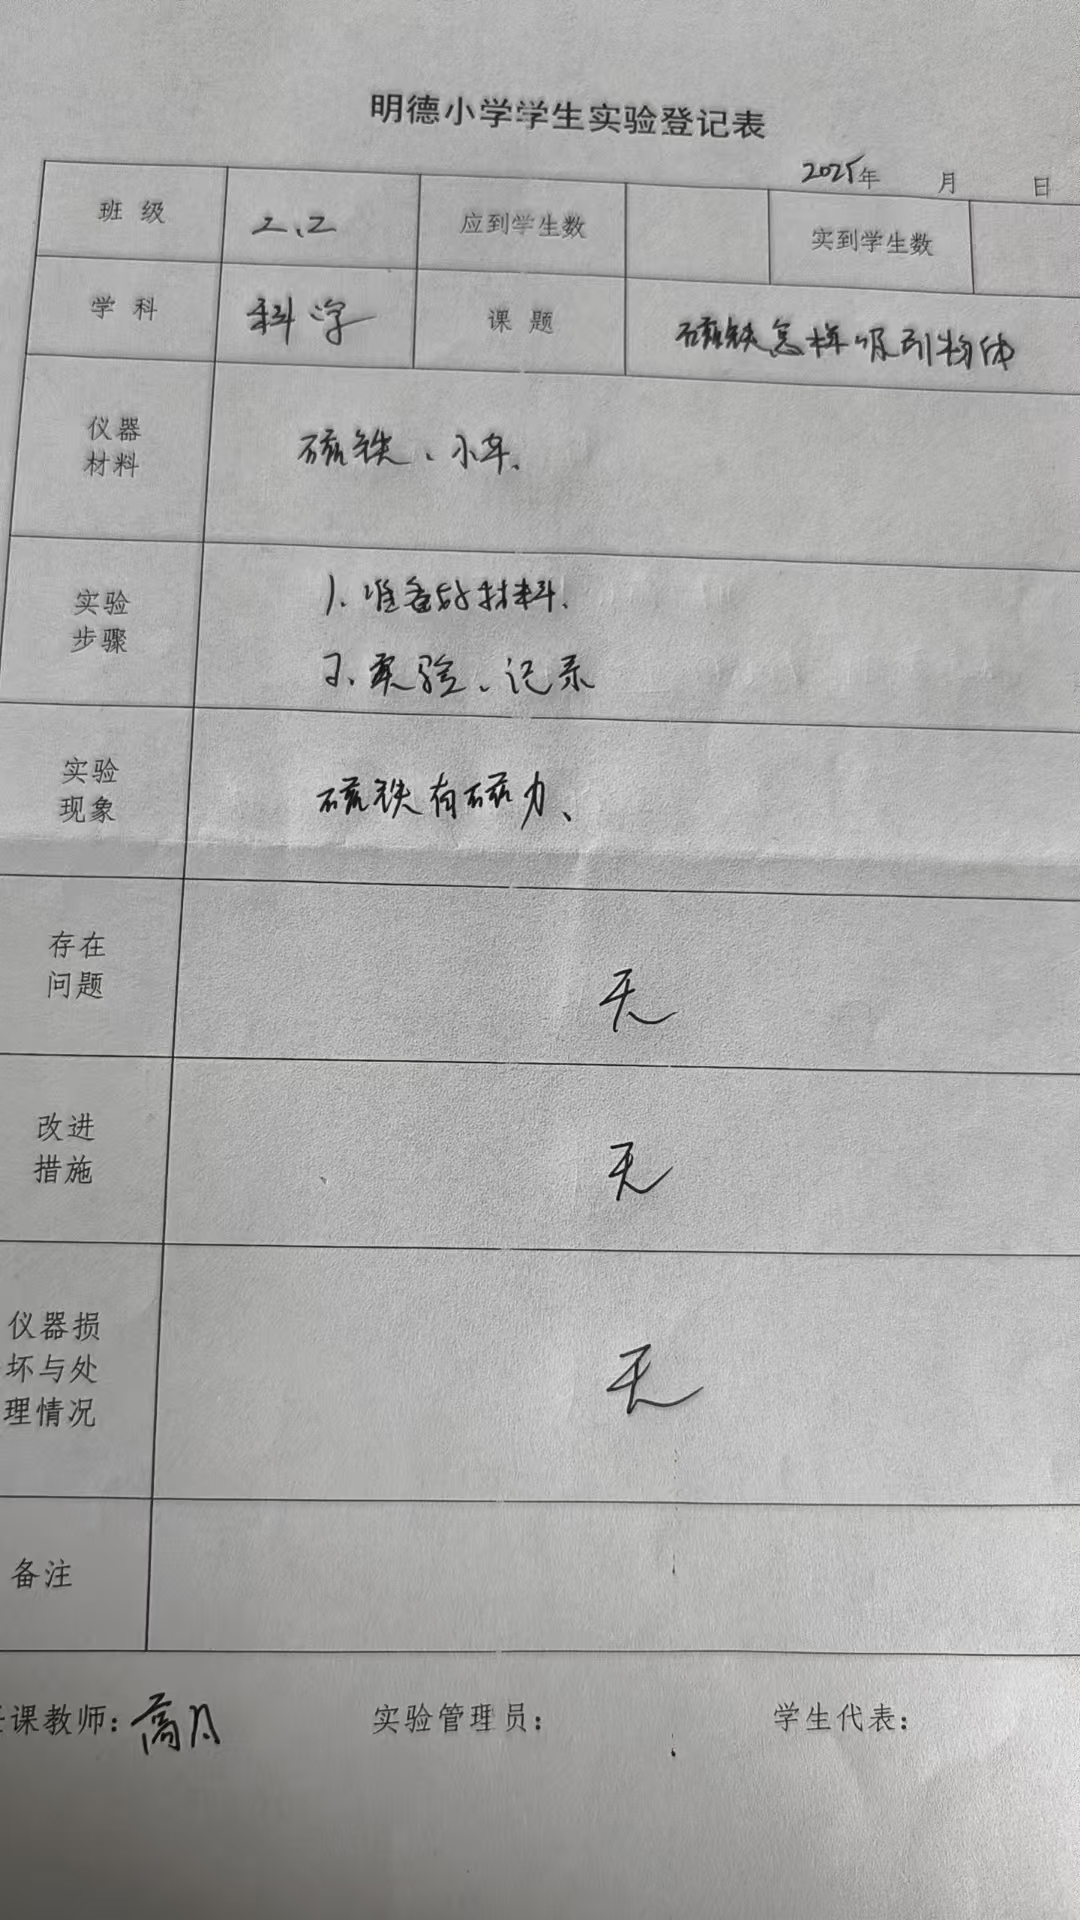 明德小学学生实验登记表
2025年 月 日
班 级 2.2 应到学生数 实到学生数
学 科 科学 课 题 磁铁怎样吸引物体
仪器
材料
磁铁、小车.
实验
步骤
1. 准备好材料.
2. 实验、记录
实验
现象
磁铁有磁力、
存在
问题
无
改进
措施
无
仪器损
坏与处
理情况
无
备注
课教师: 高月 实验管理员: 学生代表: